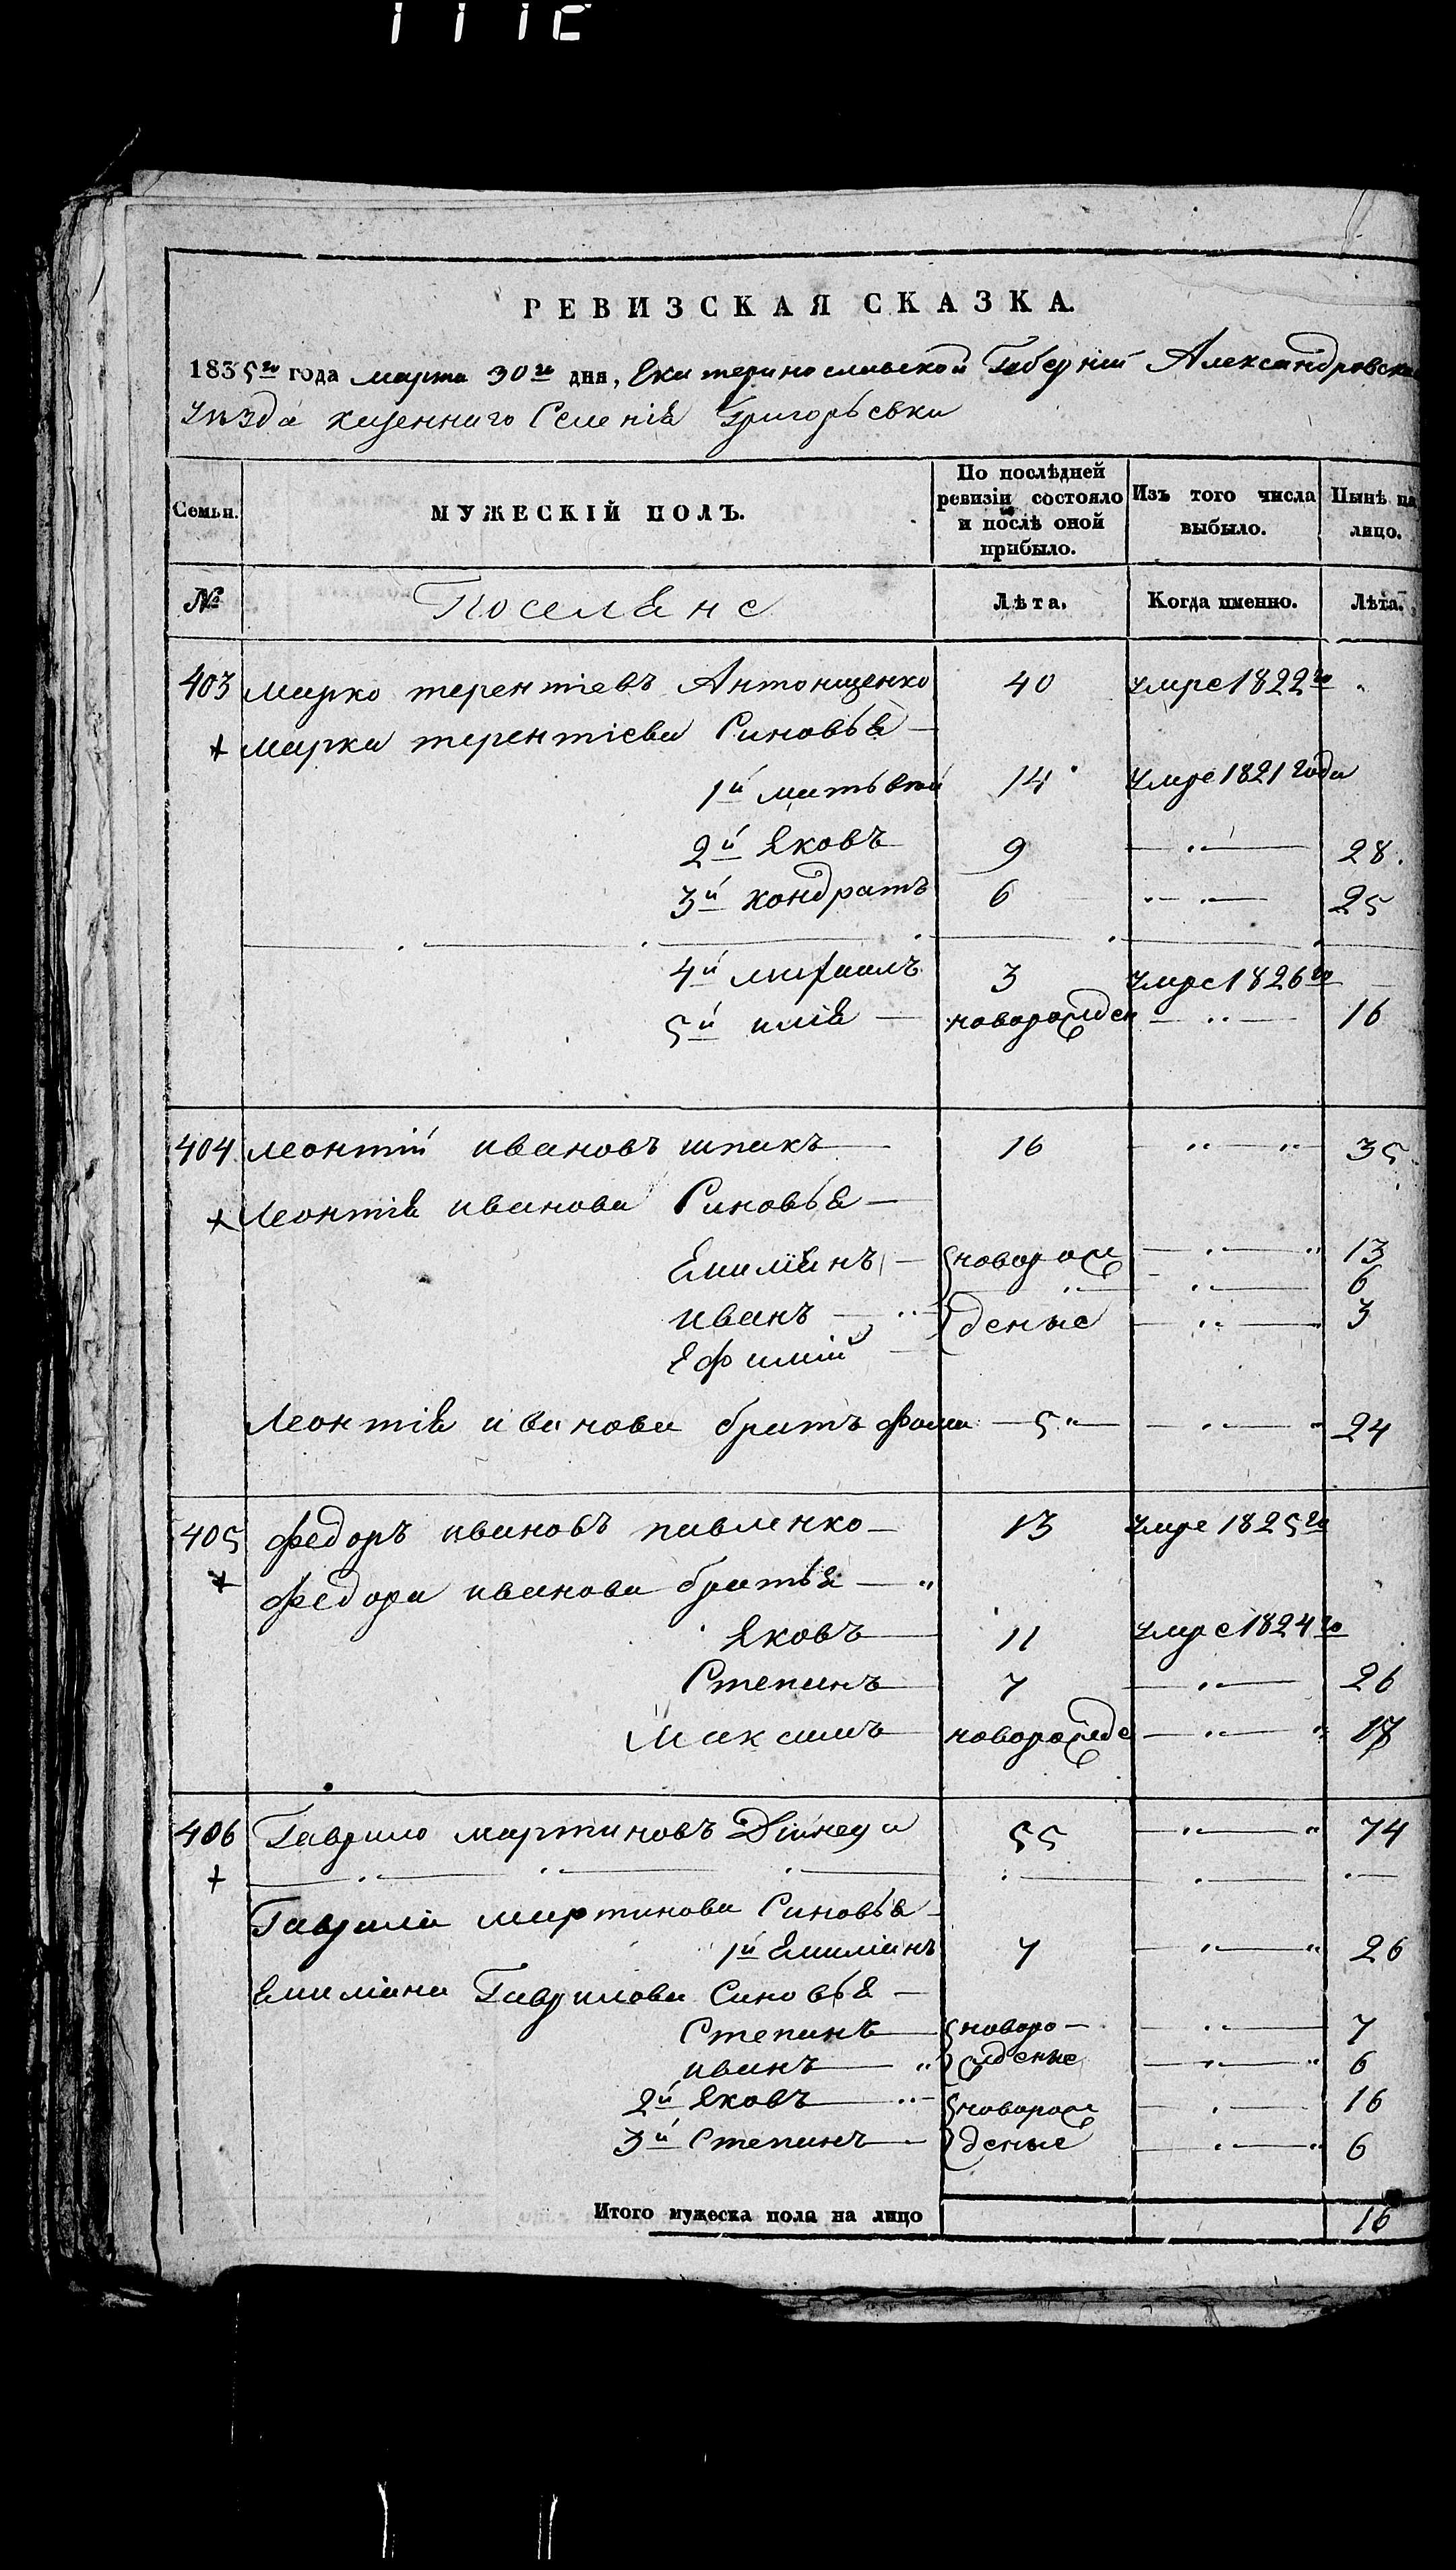 РЕВИЗСКАЯ СКАЗКА.
1835го года марта 30го дня, Екатеринославской Губерніи Александровска
Уѣзда казенного Селенія Григорьевки
Семьи. МУЖЕСКІЙ ПОЛЪ. По послѣдней ревизіи состояло и послѣ оной прибыло. Изъ того числа выбыло. Нынѣ на лицо.
№ Поселяне Лѣта. Когда именно. Лѣта.
403 марко терентіевъ Антонщенко 40 умре 1822го
+ марка терентіева Синовья —
1й матьвѣй 14 умре 1821 года
2й Яковъ 9 — 28.
3й кондратъ 6 — 25
4й михаилъ 3 умре 1826го
5й илія — новорожден — 16
404 леонтій ивановъ шпакъ — 16 — 35
+ Леонтія иванова Синовья —
Емиліянъ — новорож — 13
— 6
иванъ — деные — 3
Ефимій —
Леонтія иванова братъ фома — 5 — 24
405 федоръ ивановъ павленко — 13 умре 1825го
+ федора иванова братья —
Яковъ — 11 умре 1824го
Степанъ — 7 — 26
Максимъ — новорожде — 17
406 Гаврило мартиновъ Дійнега 55 — 74
+
Гаврила мартинова Синовья —
1й Емиліянъ 7 — 26
Емиліана Гаврилова Синовья —
Степанъ — новоро — 7
иванъ — жденые — 6
2й Яковъ — новорож — 16
3й Степанъ — деные — 6
Итого мужеска пола на лицо 16